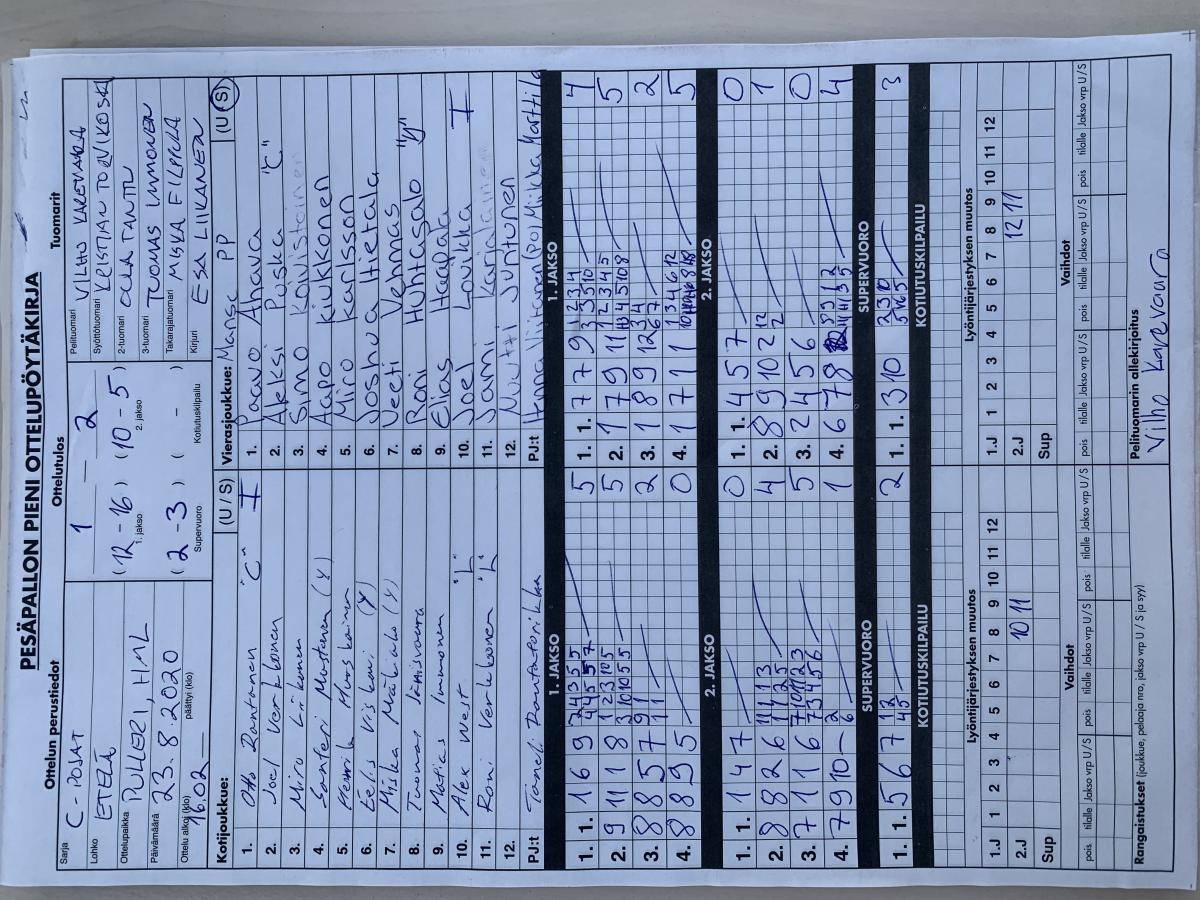 PESÄPALLON PIENI OTTELUPÖYTÄKIRJA
Ottelun perustiedot
Sarja C-POJAT
Lohko ETELÄ
Ottelupaikka PULLERI, HML
Päivämäärä 23.8.2020
Ottelu alkoi (klo) 16.02 päättyi (klo)
Ottelutulos
1 – 2
(12 – 16) (10 – 5)
1. jakso 2. jakso
(2 – 3) ( – )
Supervuoro Kotiutuskilpailu
Tuomarit
Pelituomari VILHO KAREVAARA
Syöttötuomari KRISTIAN TOIVIKOSKI
2-tuomari OLLA TANTTU
3-tuomari TUOMAS IMMONEN
Takarajatuomari MISKA FILPPULA
Kirjuri ESA LIIKANEN
Kotijoukkue: (U / S)
1. Otto Rantanen "C" I
2. Joel Verkkonen
3. Miro Liikanen
4. Santeri Mustonen (Y)
5. Henrik
6. Eelis (Y)
7. Miska Mäkiaho (Y)
8. Tuomas
9. Matias Immonen
10. Alex West "L"
11. Roni Verkkonen "L"
12.
PJ:t Taneli
Vierasjoukkue: Manse PP (U / S)
1. Paavo Ahava
2. Aleksi Puska "C"
3. Simo Koivistoinen
4. Aapo Kiukkonen
5. Miro Karlsson
6. Joshua Hietala
7. Veeti Vehmas
8. Roni Huhtasalo "Y"
9. Elias Haapala
10. Joel Lovikka I
11. Jami Karjalainen
12. Nuutti Juntunen
PJ:t Henna Viitanen (PO) Miikka Marttila
1. JAKSO
1. 1. 1 6 9 5
2. 9 11 1 8 5
3. 8 8 5 7 2
4. 8 8 9 5 0
1. JAKSO
1. 1. 7 7 9 4
2. 1 7 9 11 5
3. 1 8 9 12 2
4. 1 7 1 1 5
2. JAKSO
1. 1. 1 4 7 0
2. 8 8 2 6 4
3. 7 1 1 6 5
4. 7 9 10 – 1
2. JAKSO
1. 1. 4 5 7 0
2. 8 9 10 2 1
3. 2 4 5 6 0
4. 6 7 8 4
SUPERVUORO
1. 1. 5 6 7 2
SUPERVUORO
1. 1. 3 10 3
KOTIUTUSKILPAILU
KOTIUTUSKILPAILU
Lyöntijärjestyksen muutos
1.J 1 2 3 4 5 6 7 8 9 10 11 12
2.J 10 11
Sup
Lyöntijärjestyksen muutos
1.J 1 2 3 4 5 6 7 8 9 10 11 12
2.J 12 11
Sup
Vaihdot
pois tilalle Jakso vrp U / S pois tilalle Jakso vrp U / S pois tilalle Jakso vrp U / S
Vaihdot
pois tilalle Jakso vrp U / S pois tilalle Jakso vrp U / S pois tilalle Jakso vrp U / S
Rangaistukset (joukkue, pelaaja nro, jakso vrp U / S ja syy)
Pelituomarin allekirjoitus
Vilho Karevaara